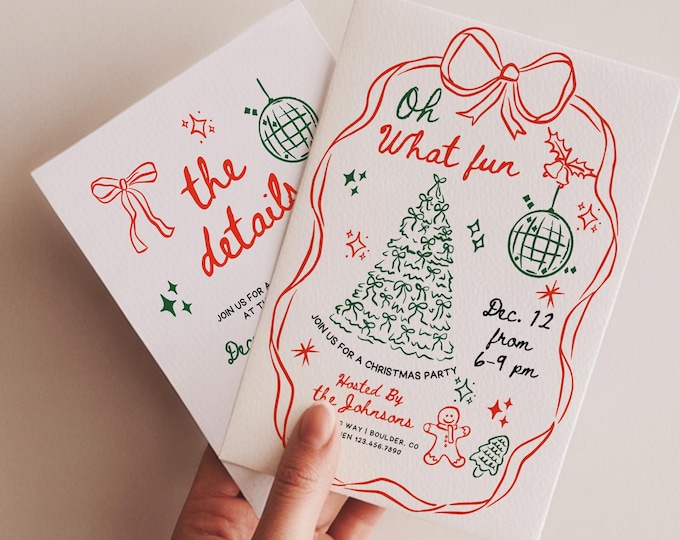 the
details
JOIN US FOR A
AT TH
Dec
Oh
What fun
Dec. 12
from
6-9 pm
JOIN US FOR A CHRISTMAS PARTY
Hosted By
the Johnsons
WAY | BOULDER, CO
123.456.7890